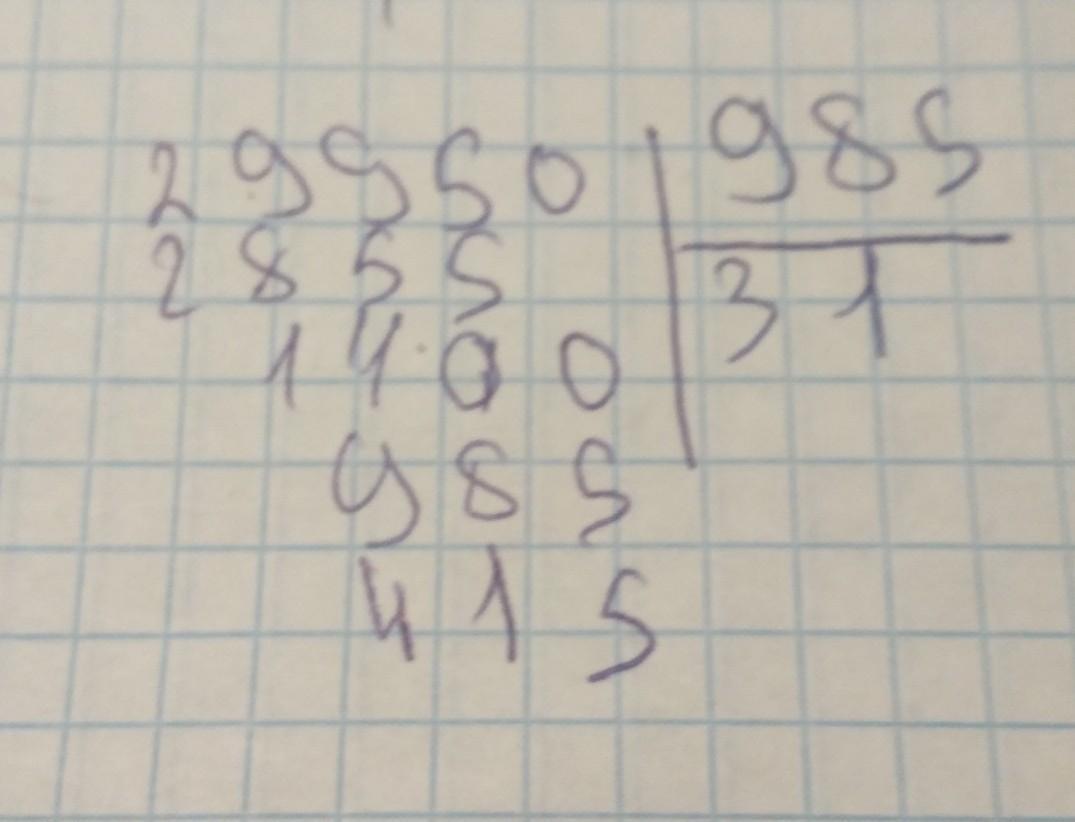 29950 985
2855 31
1400
985
415